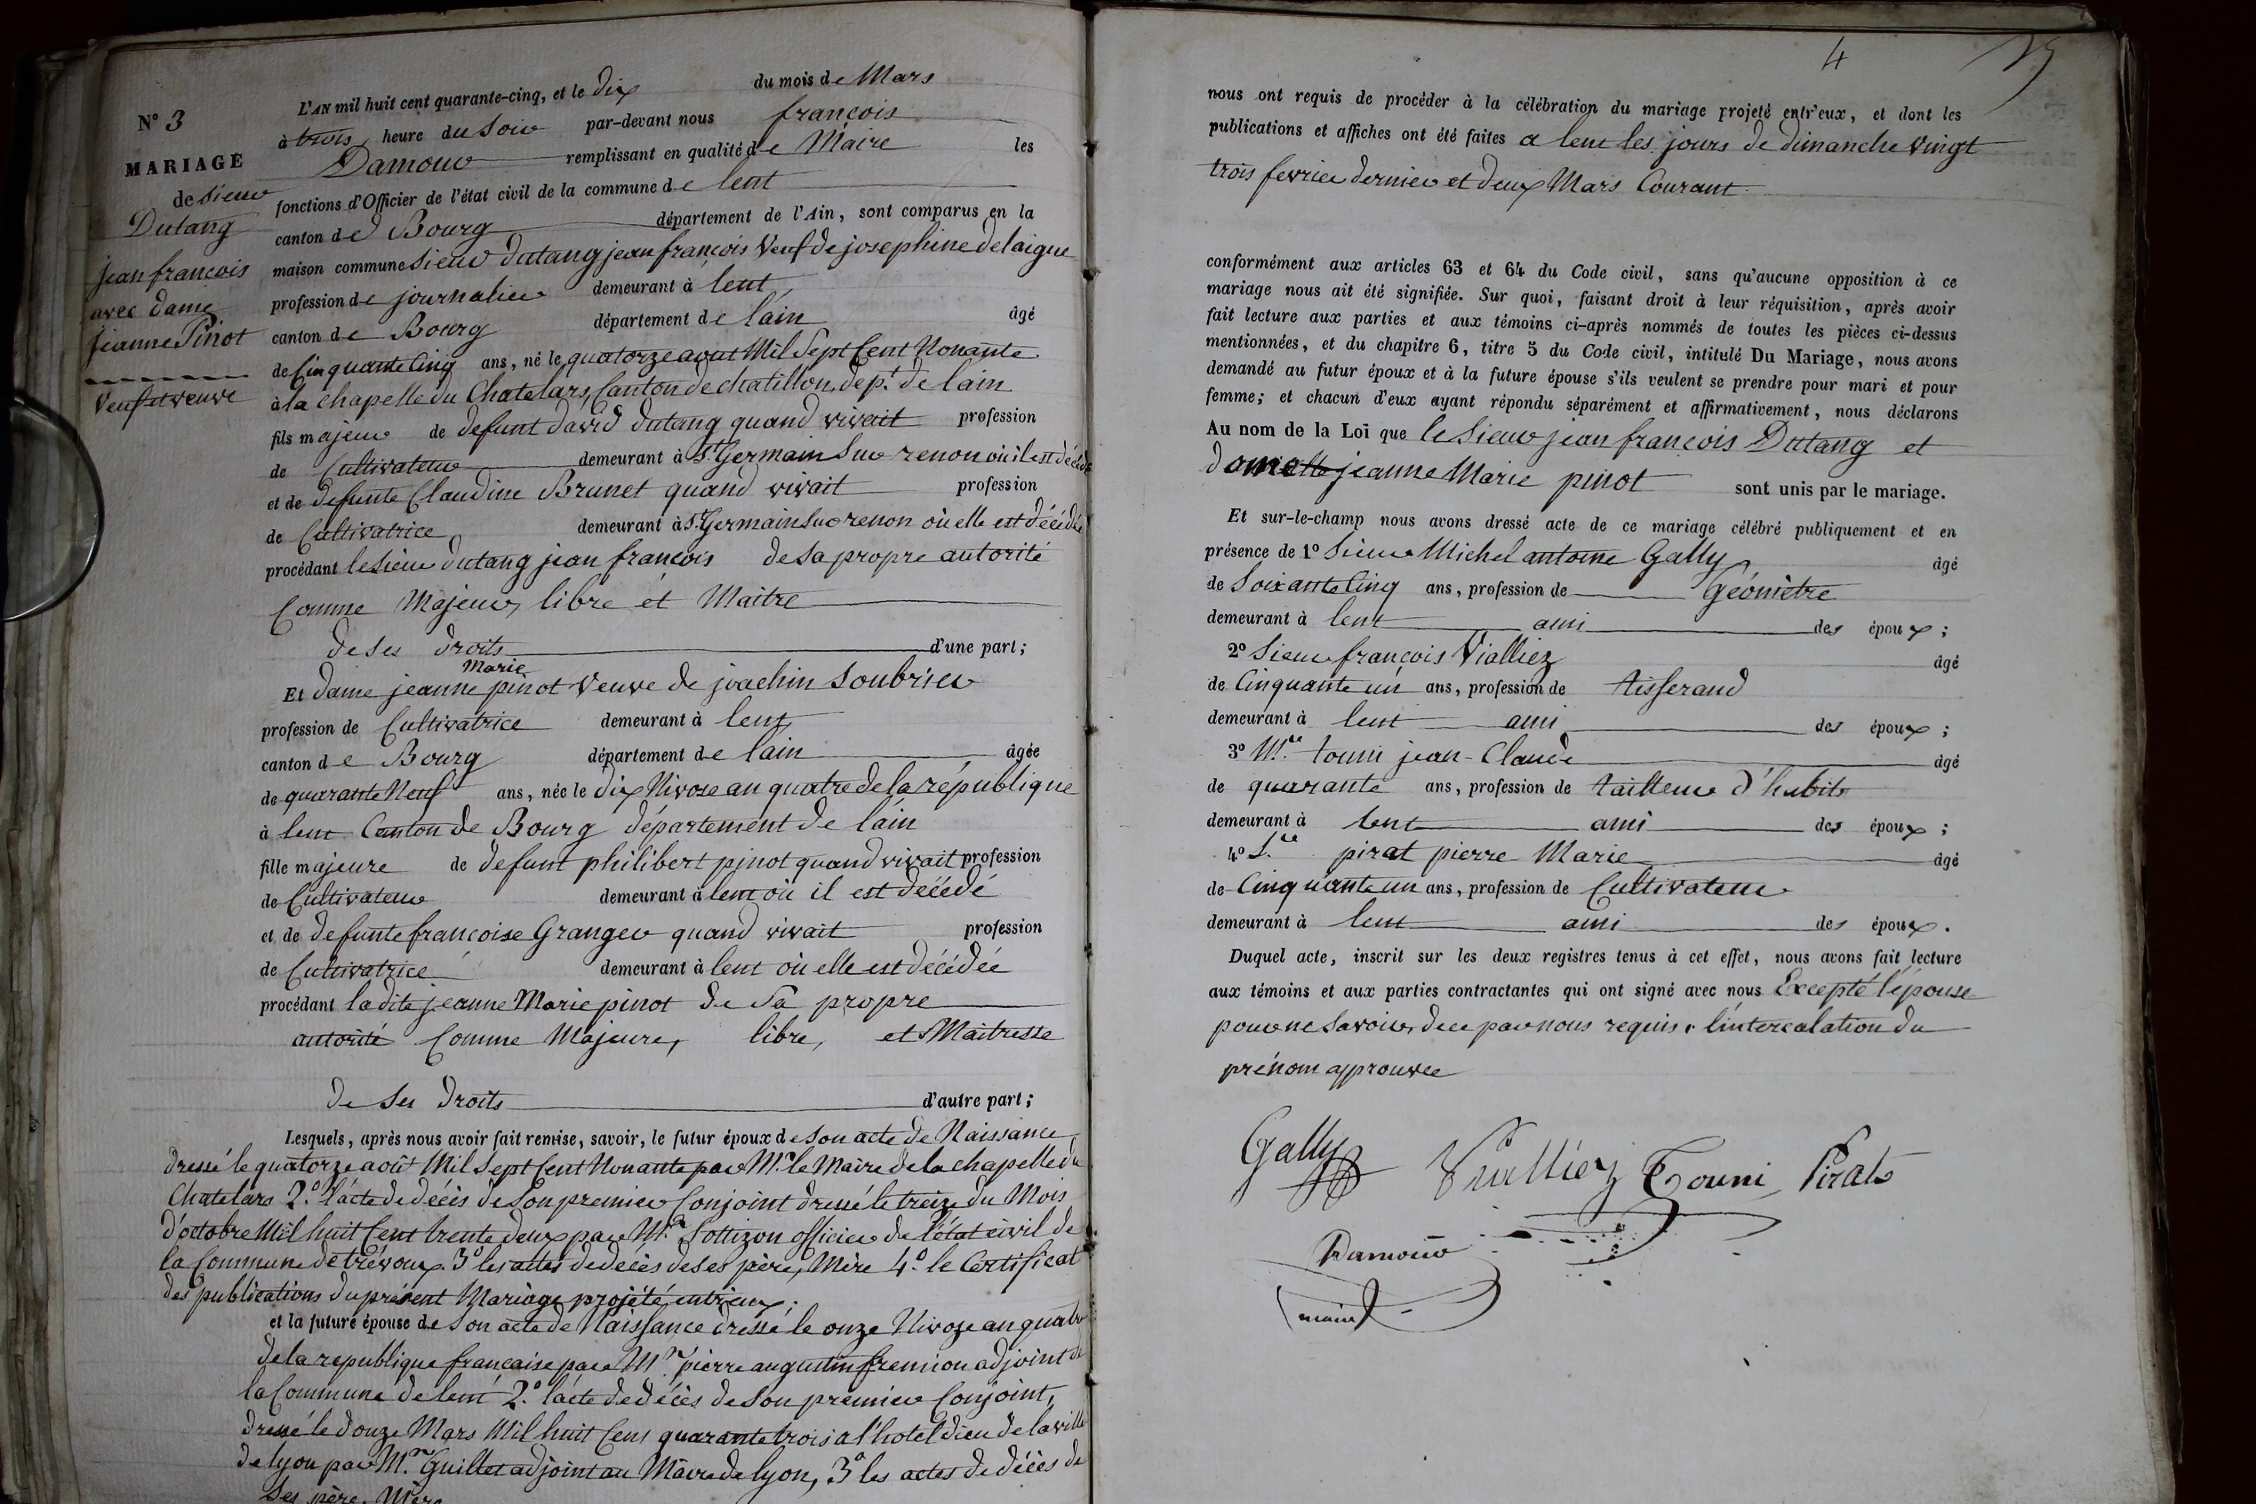 L'AN mil huit cent quarante-cinq, et le dix du mois de Mars
à trois heure du Soir par-devant nous françois
Damour remplissant en qualité de Maire les
fonctions d'Officier de l'état civil de la commune de lent
canton de Bourg département de l'Ain, sont comparus en la
maison commune Sieur dutang jean françois Veuf de josephine delaigue
profession de journalier demeurant à lent
canton de Bourg département de l'ain âgé
de Cinquante Cinq ans, né le quatorze aout Mil Sept Cent Nonante
à la chapelle du Chatelars, Canton de chatillon, dep.t de l'ain
fils majeur de defunt david dutang quand vivait profession
de Cultivateur demeurant à St Germain Sur renon où il est décédé
et de defunte Claudine Brunet quand vivait profession
de Cultivatrice demeurant à St Germain Sur renon où elle est décédée
procédant le Sieur dutang jean françois de sa propre autorité
Comme Majeur, libre et Maitre
de Ses droits d'une part;
Marie
Et dame jeanne pinot Veuve de joachin Soubrier
profession de Cultivatrice demeurant à lent
canton de Bourg département de l'ain âgée
de quarante Neuf ans, née le dix Nivose an quatre de la république
à lent Canton de Bourg département de l'ain
fille majeure de defunt philibert pinot quand vivait profession
de Cultivateur demeurant à lent où il est décédé
et de defunte françoise Granger quand vivait profession
de Cultivatrice demeurant à lent où elle est décédée
procédant la dite jeanne Marie pinot de Sa propre
autorité Comme Majeure, libre, et Maitresse
de Ses droits d'autre part;
Lesquels, après nous avoir fait remise, savoir, le futur époux de son acte de Naissance
dressé le quatorze août Mil Sept Cent Nonante par Mr. le Maire de la chapelle du
Chatelars 2.o l'acte de décès de Son premier Conjoint dressé le treize du Mois
d'octobre Mil huit Cent trente deux par Mr. Sottizon officier de l'état civil de
la Commune de trévoux 3o les actes de decès de ses père, Mère 4.o le Certificat
des publications du présent Mariage projété entr'eux;
et la future épouse de Son acte de Naissance dressé le onze Nivoze an quatre
de la republique française par Mr. pierre augustin fremion adjoint de
la Commune de lent 2.o l'acte de décès de Son premier Conjoint,
dressé le douze Mars Mil huit Cent quarante trois à l'hotel dieu de la ville
de lyon par Mr. Guillet adjoint au Maire de lyon, 3o les actes de décès de
Ses père, Mère
N° 3
MARIAGE
de Sieur
Dutang
jean francois
avec dame
jeanne Pinot
Veuf et veuve
4
nous ont requis de procéder à la célébration du mariage projeté entr'eux, et dont les
publications et affiches ont été faites a lent les jours de dimanche Vingt
trois fevrier dernier et deux Mars Courant
conformément aux articles 63 et 64 du Code civil, sans qu'aucune opposition à ce
mariage nous ait été signifiée. Sur quoi, faisant droit à leur réquisition, après avoir
fait lecture aux parties et aux témoins ci-après nommés de toutes les pièces ci-dessus
mentionnées, et du chapitre 6, titre 5 du Code civil, intitulé Du Mariage, nous avons
demandé au futur époux et à la future épouse s'ils veulent se prendre pour mari et pour
femme; et chacun d'eux ayant répondu séparément et affirmativement, nous déclarons
Au nom de la Loi que le Sieur jean françois Dutang et
dame jeanne Marie pinot sont unis par le mariage.
Et sur-le-champ nous avons dressé acte de ce mariage célébré publiquement et en
présence de 1° Sieur Michel antoine Gally âgé
de Soixante Cinq ans, profession de Géomètre
demeurant à lent ami des époux;
2° Sieur françois Vialliez âgé
de Cinquante un ans, profession de tisserand
demeurant à lent ami des époux;
3° touni jean-Claude âgé
de quarante ans, profession de tailleur d'habits
demeurant à lent ami des époux;
4° pirat pierre Marie âgé
de Cinquante un ans, profession de Cultivateur
demeurant à lent ami des époux.
Duquel acte, inscrit sur les deux registres tenus à cet effet, nous avons fait lecture
aux témoins et aux parties contractantes qui ont signé avec nous Excepté l'épouse
pour ne Savoir, de ce par nous requis. l'intercalation du
prénom approuvée
Gally Vialliez Touni Pirat
Damour
maire